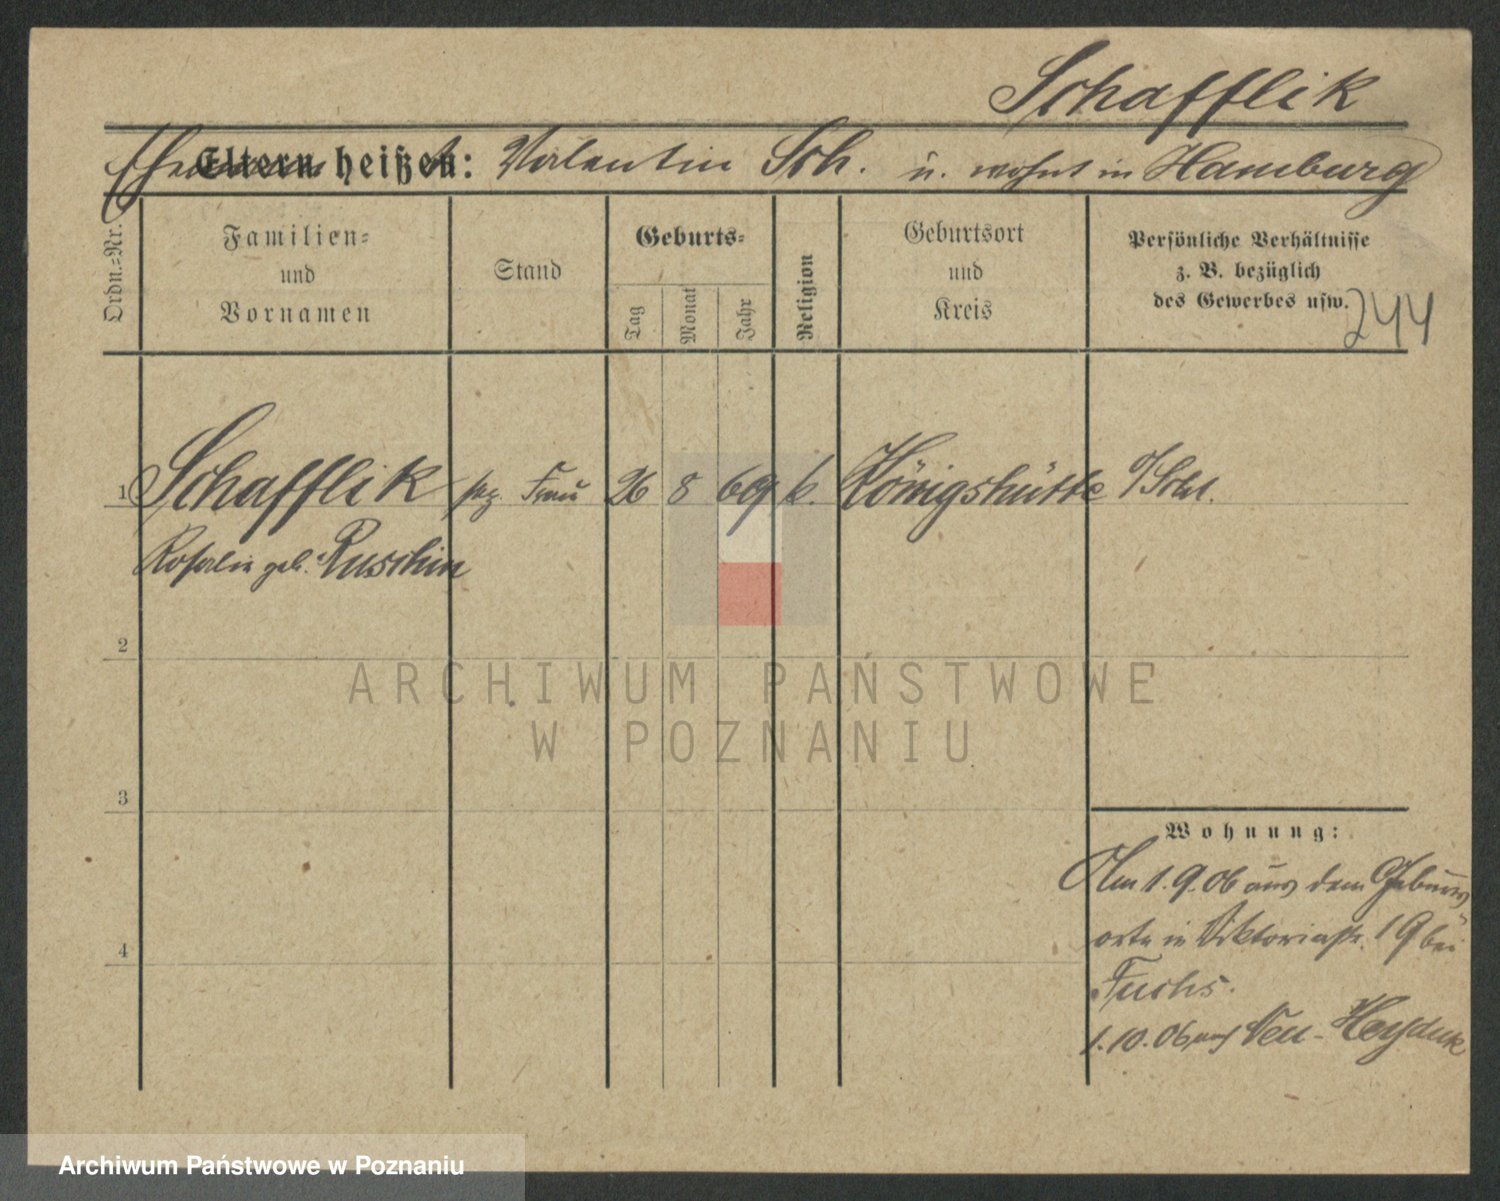 Schafflik
Eltern heißen: Valentin Sch. u. wohnt in Hamburg
Ordn.-Nr.
Familien-
und
Vornamen
Stand
Geburts-
Tag
Monat
Jahr
Religion
Geburtsort
und
Kreis
Persönliche Verhältnisse
z. B. bezüglich
des Gewerbes usw.
244
1 Schafflik Frau 26 8 69 k. Königshütte O/Schl.
Rosalie geb. Ruschin
2
3
4
Wohnung:
Am 1.9.06 aus dem Geburts-
orte in Viktoriastr. 19 bei
Fuchs.
1.10.06 nach Neu-Heyduk
ARCHIWUM PAŃSTWOWE
W POZNANIU
Archiwum Państwowe w Poznaniu